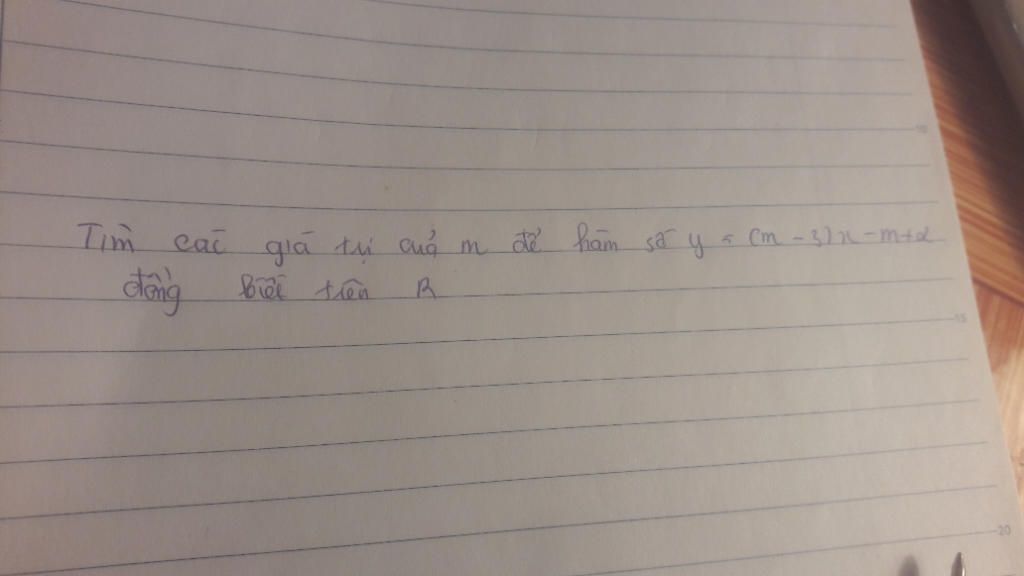 Tìm các giá trị của m để hàm số y = (m - 3)x - m + 2
đồng biến trên R
10
15
20